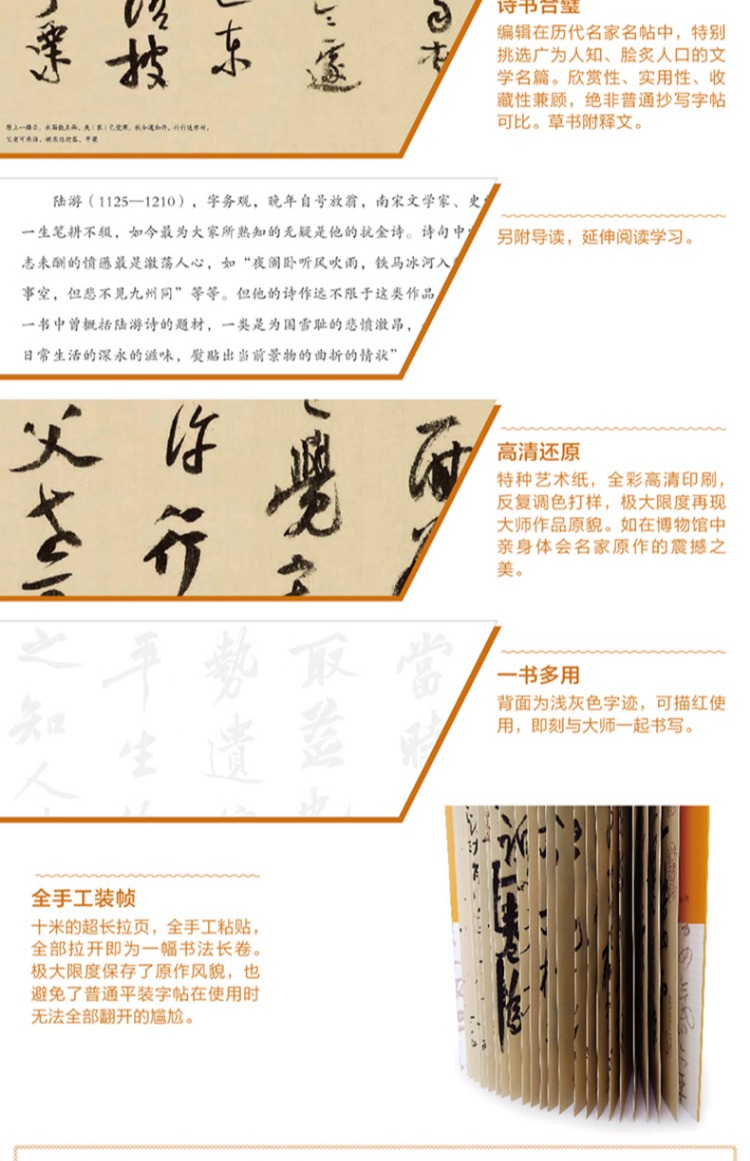 诗书合璧
编辑在历代名家名帖中，特别
挑选广为人知、脍炙人口的文
学名篇。欣赏性、实用性、收
藏性兼顾，绝非普通抄写字帖
可比。草书附释文。
陆游（1125—1210），字务观，晚年自号放翁，南宋文学家、史
一生笔耕不辍，如今最为大家所熟知的无疑是他的抗金诗。诗句中
志未酬的愤懑最是激荡人心，如“夜阑卧听风吹雨，铁马冰河入
事空，但悲不见九州同”等等。但他的诗作远不限于这类作品
一书中曾概括陆游诗的题材，一类是为国雪耻的悲愤激昂，
日常生活的深永的滋味，熨贴出当前景物的曲折的情状”
另附导读，延伸阅读学习。
父老
许行
觉
高清还原
特种艺术纸，全彩高清印刷，
反复调色打样，极大限度再现
大师作品原貌。如在博物馆中
亲身体会名家原作的震撼之
美。
之知人
平生
勢遺
取益也
當時
一书多用
背面为浅灰色字迹，可描红使
用，即刻与大师一起书写。
全手工装帧
十米的超长拉页，全手工粘贴，
全部拉开即为一幅书法长卷。
极大限度保存了原作风貌，也
避免了普通平装字帖在使用时
无法全部翻开的尴尬。